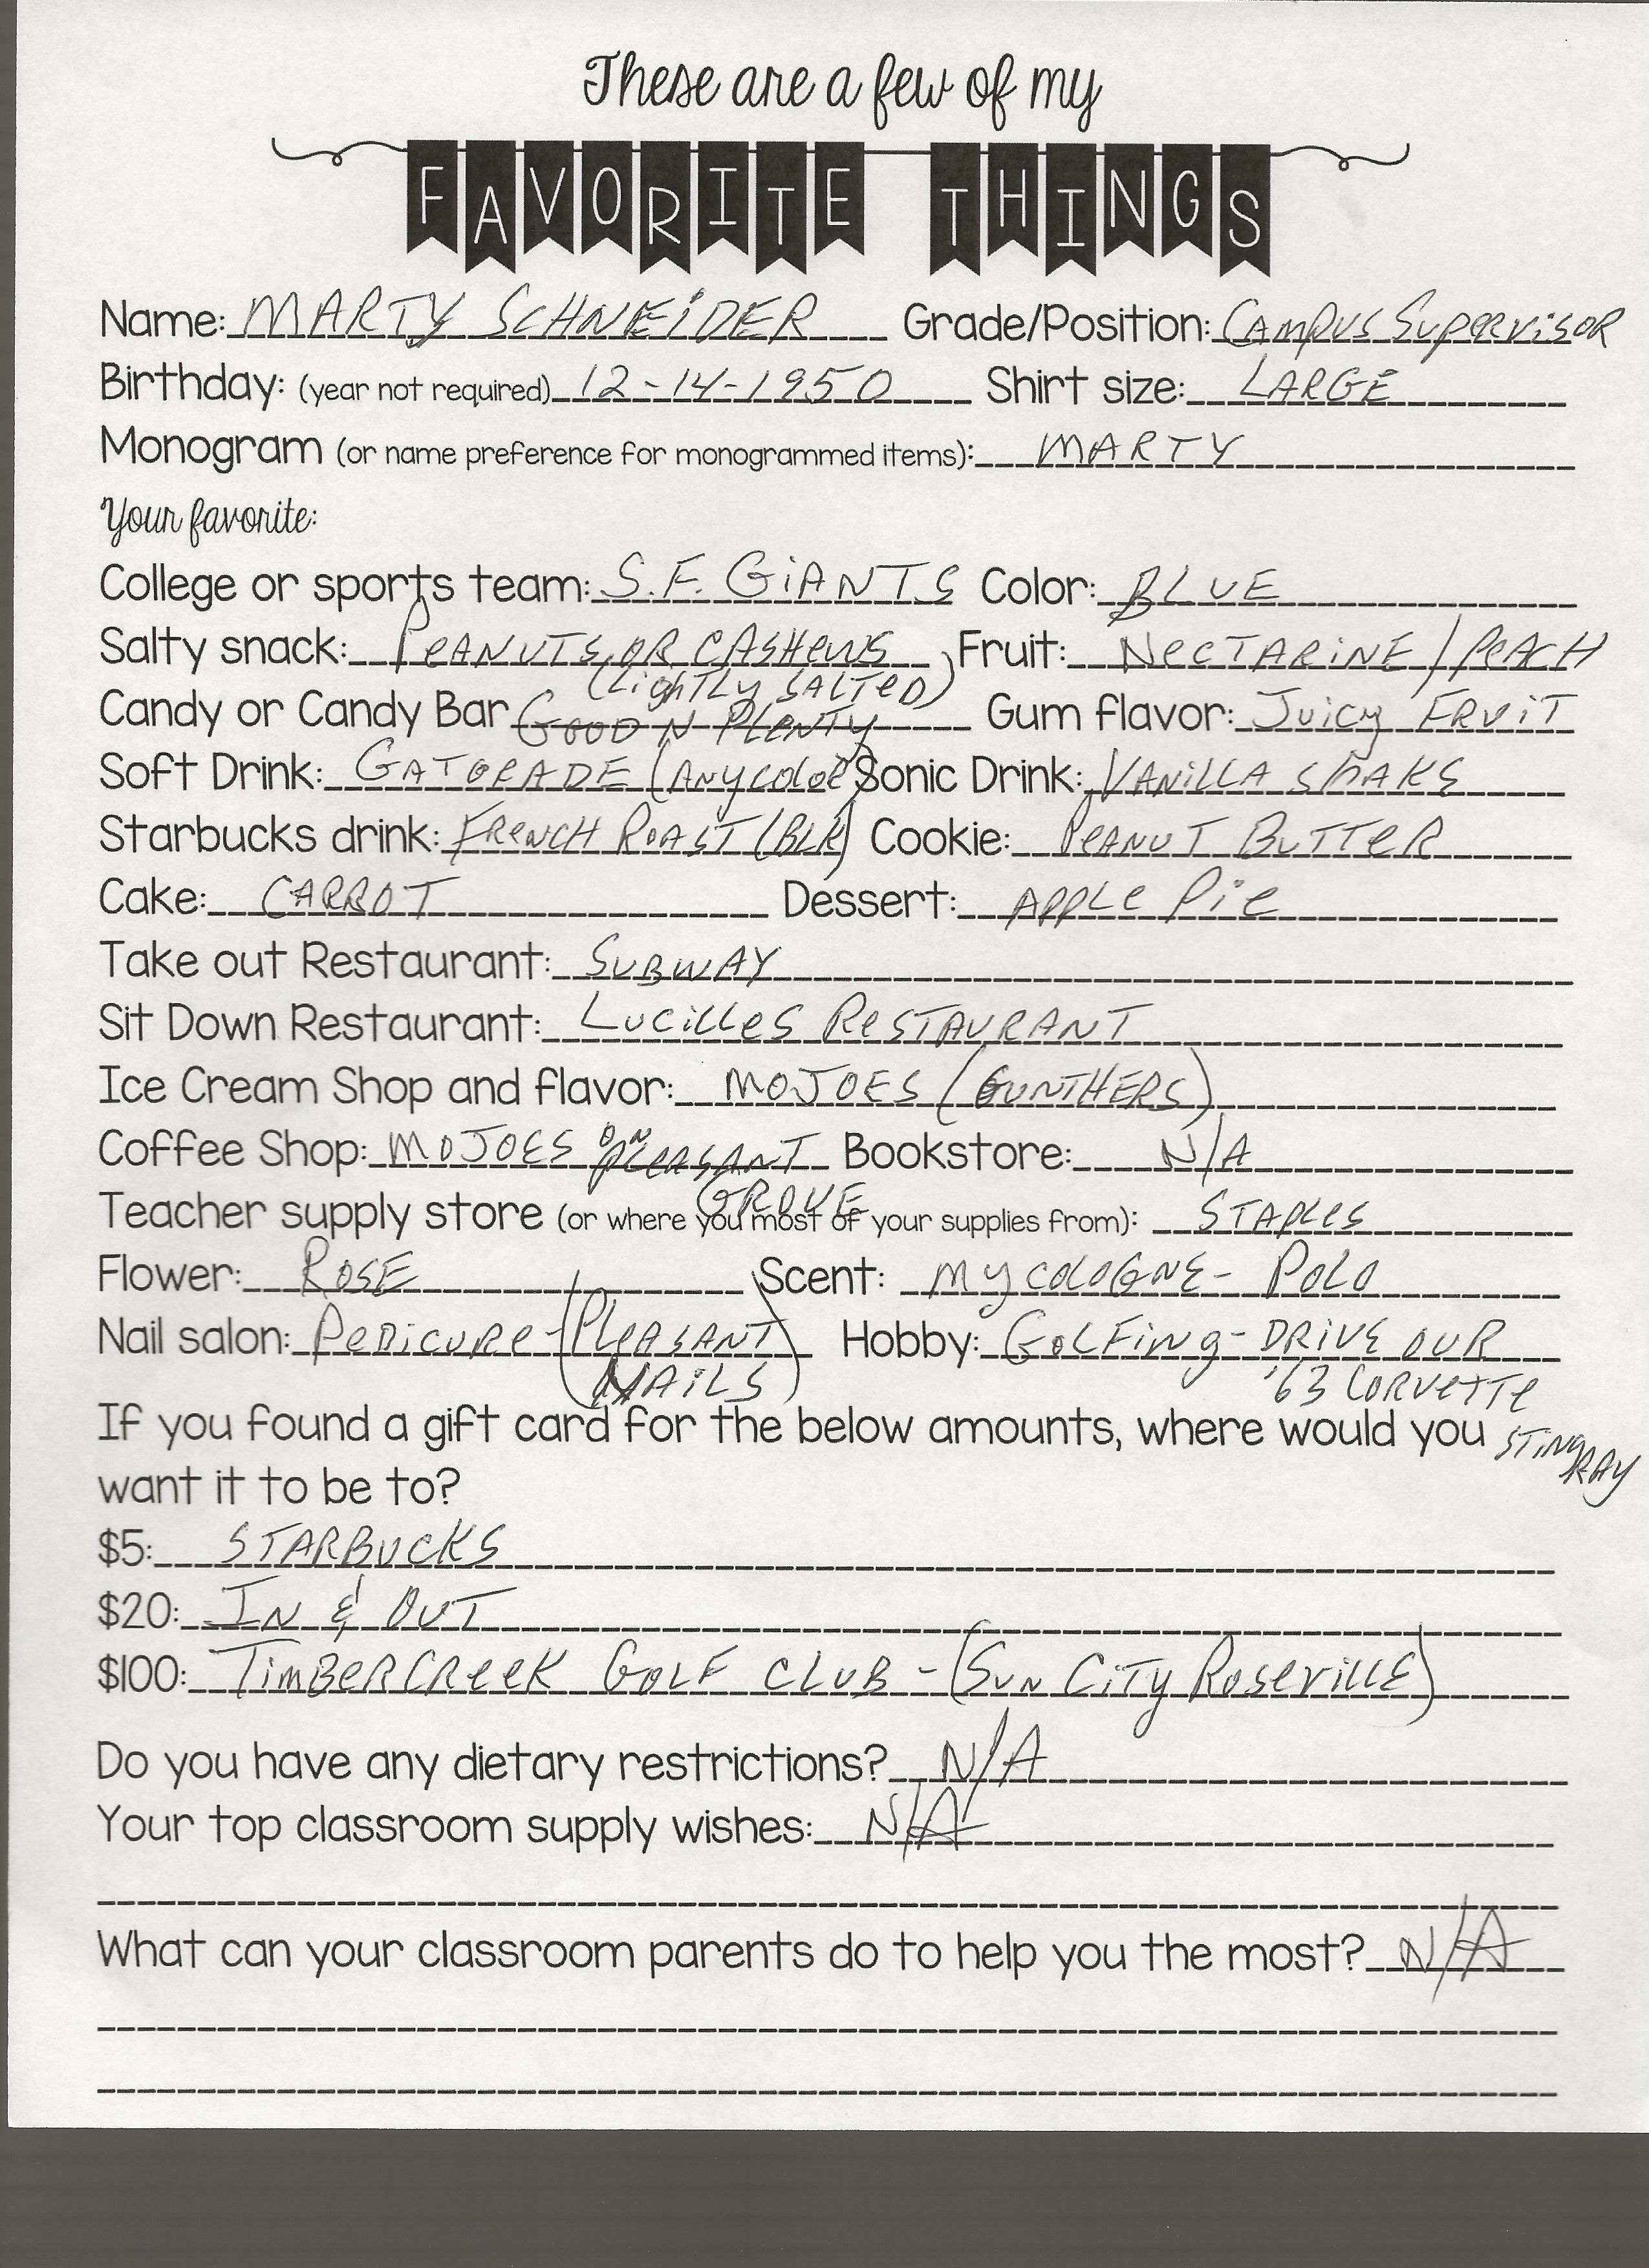 These are a few of my
FAVORITE THINGS
Name: MARTY SCHNEiDER Grade/Position: CAMPUS SUPERViSOR
Birthday: (year not required) 12-14-1950 Shirt size: LARGE
Monogram (or name preference for monogrammed items): MARTY
Your favorite:
College or sports team: S.F. GiANTS Color: BLUE
Salty snack: PeANUTS OR CASHeWS Fruit: NeCTARiNE / PeACH
(LighTLY SALTeD)
Candy or Candy Bar GOOD N PLeNTY Gum flavor: Juicy FRUiT
Soft Drink: GATORADE (ANYCOLOR) Sonic Drink: VANiLLA SHAKE
Starbucks drink: FReNCH ROAST (BLK) Cookie: PeANUT BUTTeR
Cake: CARROT Dessert: APPLe Pie
Take out Restaurant: SUBWAY
Sit Down Restaurant: LUCiLLeS ReSTAURANT
Ice Cream Shop and flavor: MOJOES (GUNTHERS)
Coffee Shop: MOJOES ON PLeASANT Bookstore: N/A
GROVE
Teacher supply store (or where you most of your supplies from): STAPLeS
Flower: ROSE Scent: MY COLOGNE - POLO
Nail salon: PeDiCURe - (PLeASANT Hobby: GOLFiNg - DRiVE OUR
NAiLS) '63 CORVeTTe
If you found a gift card for the below amounts, where would you STiNg RAY
want it to be to?
$5: STARBUCKS
$20: IN & OUT
$100: TiMBeRCReeK GOLF CLUB - (SUN CiTY ROSeViLLE)
Do you have any dietary restrictions? N/A
Your top classroom supply wishes: N/A
What can your classroom parents do to help you the most? N/A